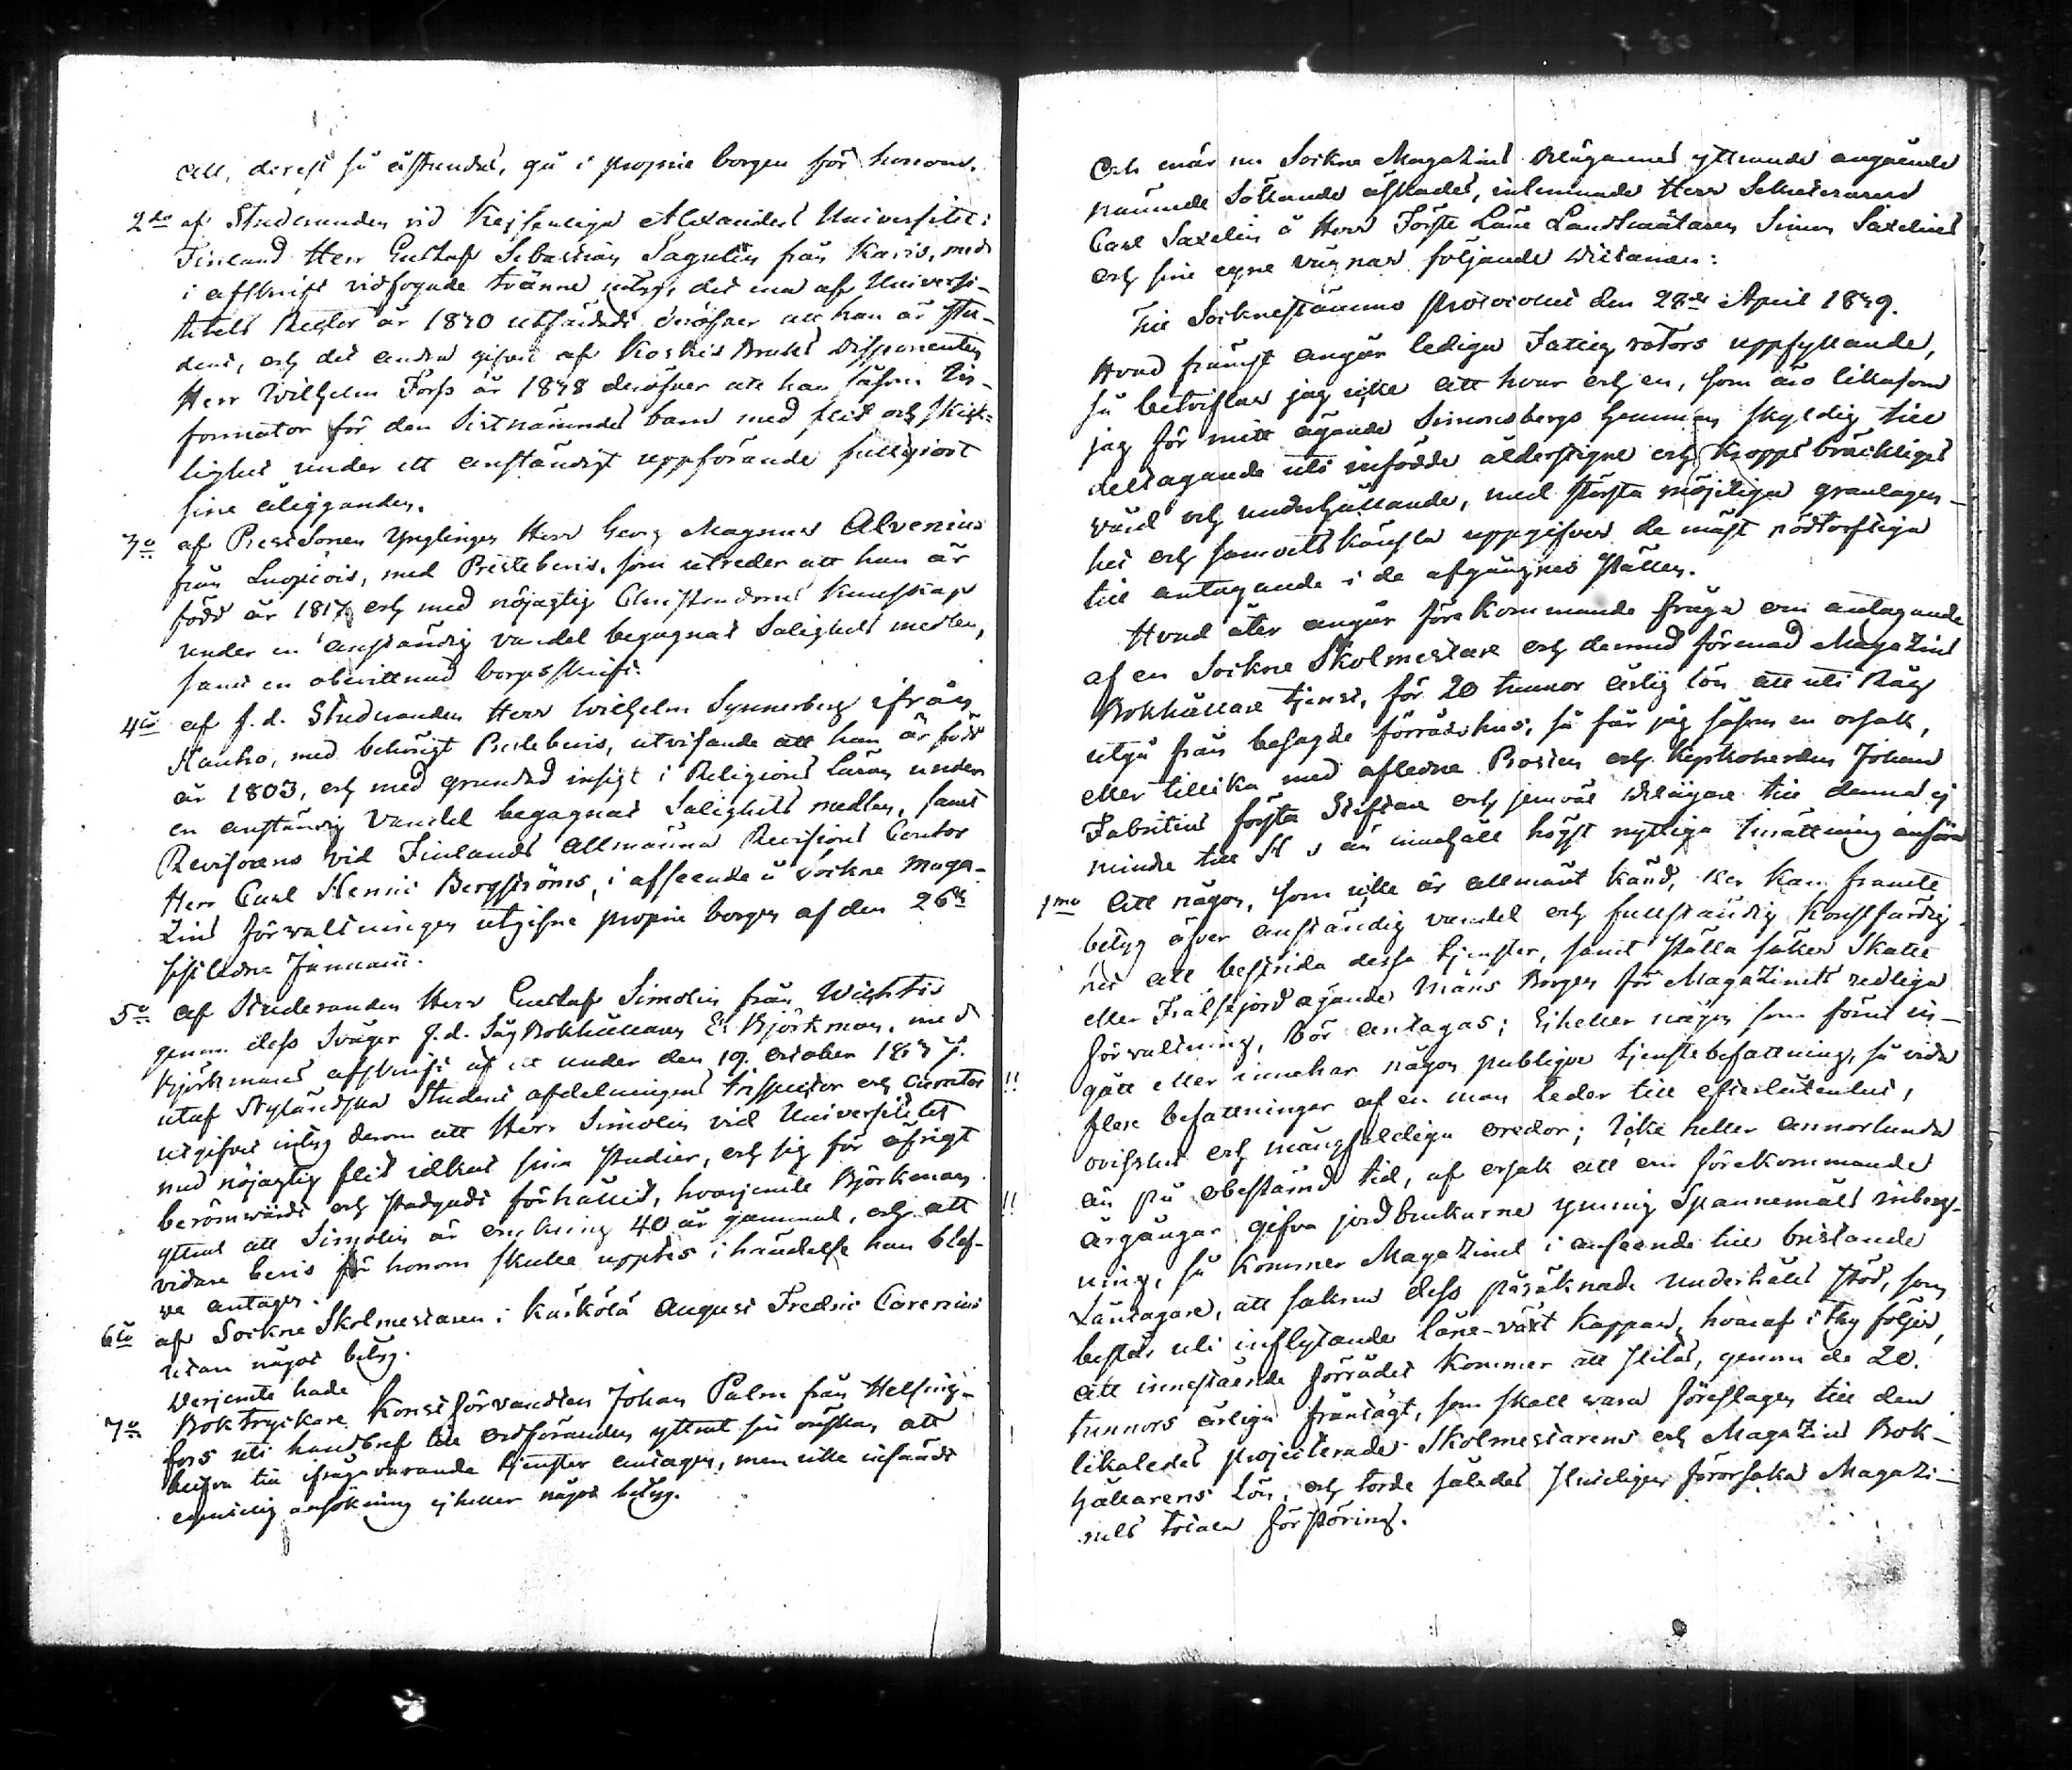 att, derest så åstundas, gå i proprie borgen för honom.
2do af Studeranden vid Kejserliga Alexanders Universitet i
Finland Herr Gustaf Sebastian Sagulin från Karis, med
i afskrift vidfogade tvänne intyg, det ena af Universi-
tetets Rector år 1840 utfärdadt deröfver att han är Stu-
dent, och det andra gifvet af Koskis Bruks Disponenten
Herr Wilhelm Forss år 1848 deröfver att han såsom In-
formator för den Sistnämndes barn med flit och skick-
lighet under ett anständigt uppförande fullgjort
sine åligganden.
3o af Preststonen Ynglingen Herr Georg Magnus Alvenius
från Luopiois, med Prestebevis, som utreder att han är
född år 1817, och med nöjagtig Christendoms Kunskap
under en anständig vandel begagnat Salighets medlen,
samt en obevittnad borgesskrift.
4o af f.d. Studeranden Herr Wilhelm Synnerberg ifrån
Hauho, med behörigt Prestebevis, utvisande att han är född
år 1803, och med grundad insigt i Religions Läran under
en anständig Vandel begagnat Salighets medlen, samt
Revisorens vid Finlands Allmänna Revisions Contor
Herr Carl Henric Bergströms, i afseende å Sockne Maga-
zins förvaltningen utgifne proprie borgen af den 26te
sistledne Januarii.
5o af Studeranden Herr Gustaf Simolin från Wichtis
genom dess Svåger f.d. Såg Bokhållaren E. Björkman, med
Björkmans afskrift af ett under den 19. October
utaf Nyländska Student afdelningens Inspector och Curator
utgifvet intyg derom att Herr Simolin vid Universitetet
med nöjagtig flit idkat sina studier, och sig för öfrigt
berömvärdt och stadgadt förhållit, hvarjemte Björkman
yttrat att Simolin är omkring 40 år gammal, och att
vidare bevis för honom skulle uppvisas i händelse han blef-
ve antagen.
6to af Sockne Skolmestaren i Kärkölä August Fredric Corenius
utan något betyg.
Derjemte hade
7o Boktryckare Konst förvandten Johan Palm från Helsing-
fors uti handbref till Ordföranden yttrat sin önskan att
blifva till ifrågavarande tjenster antagen, men icke insändt
egentelig ansökning ej heller något betyg.
Och när nu Sockne Magazins Delägarnes yttrande angående
nämnde Sökande äskades, inlemnade Herr Secreteraren
Carl Saxelin å Herr Förste Läns Landtmätaren Simon Saxelins
och sine egne vägnar följande Dictamen:
Till Sockneståmmo Protocollet den 28de April 1849.
Hvad främst angår lediga Fattig rotors uppfyllande,
så betviflar jag icke att hvar och en, som äro likasom
jag för mitt ägande Simonsbergs Hemman skyldig till
deltagande uti infödde ålderstigne och Kropps bräckliges
vård och underhållande, med största möjeliga grannlagen-
het och samvets känsla uppgifver de mäst nödtorftiga
till antagande i de afgångnes ställen.
Hvad åter angår förekommande fråga om antagande
af en Sockne Skolmestare och dermed förenad Magazins
Bokhållare tjenst, för 20 tunnor årlig lön att uti Råg
utgå från besagde förrådshus, så får jag såsom en orsak,
eller tillika med afledne Prosten och Kyrkoherden Johan
Fabritius första Stiftare och jemväl Delägare till denna ej
mindre till än innehåll högst nyttiga Inrättning anföra
1mo Att någon, som icke är allmänt känd, eller kan framte
betyg öfver anständig vandel och fullständig konstfärdig-
het att bestrida dessa tjenster, samt ställa säker Skatte
eller Frälsejord ägande Mäns Borgen för Magazinets redliga
förvaltning, bör antagas; Ej heller någon som förut in-
gått eller innehar någon publique tjenstebefattning, så vida
!! flere befattningar af en man leder till efterlåtenhet,
ovisshet och mångfaldiga oredor; Icke heller annorlunda
än på obestämd tid, af orsak att om förekommande
!! årgångar gifva jordbrukarne ymnig Spannemåls inberg-
ning, så kommer Magazinet i anseende till bristande
Låntagare, att sakna dess påräknade underhålls stöd, som
består uti inflytande låne-växt kappar, hvaraf i thy följer,
att innestående förrådet kommer att slitas, genom de 20.
tunnors årliga frånsägt, som skall vara föreslagen till den
likaledes projecterade Skolmestarens och Magazins Bok-
hållarens Lön, och torde således slutligen förorsaka Magazi-
nets totala förstöring.